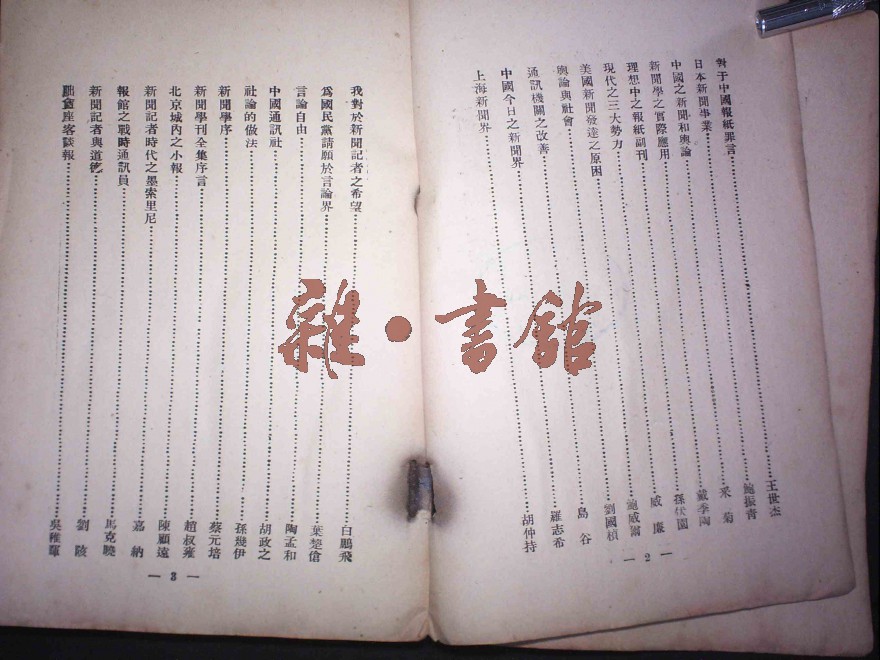 對于中國報紙罪言……王世杰
日本新聞事業……鮑振青
中國之新聞和輿論……采菊
新聞學之實際應用……戴季陶
理想中之報紙副刊……孫伏園
現代之三大勢力……威廉
美國新聞發達之原因……鮑威爾
輿論與社會……劉國楨
通訊機關之改善……島谷
中國今日之新聞界……羅志希
上海新聞界……胡仲持
— 2 —
我對於新聞記者之希望……白鵬飛
為國民黨請願於言論界……葉楚傖
言論自由……陶孟和
中國通訊社……胡政之
社論的做法……孫幾伊
新聞學序……蔡元培
新聞學刊全集序言……趙叔雍
北京城內之小報……陳顧遠
新聞記者時代之墨索里尼……嘉納
報館之戰時通訊員……馬克曉
新聞記者與道德……劉陔
朏盦座客談報……吳稚暉
— 3 —
雜·書館